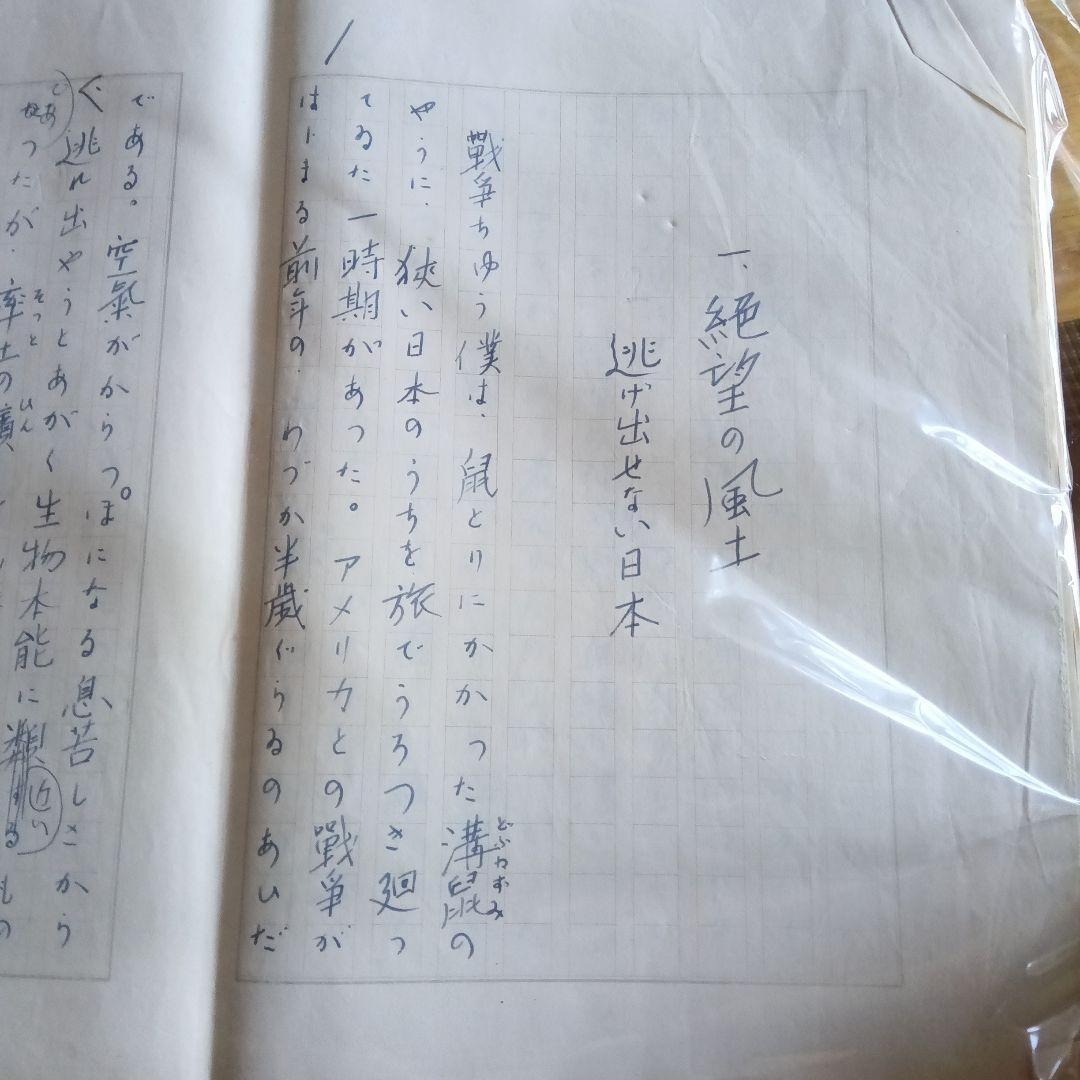 1
一、絶望の風土
逃げ出せない日本
戰爭ちゆう僕は、鼠とりにかかつた溝鼠の
どぶねずみ
やうに、狭い日本のうちを旅でうろつき廻つ
てゐた一時期があつた。アメリカとの戰爭が
はじまる前年の、わづか半歳ぐらゐのあひだ
である。空氣がからつぽになる息苦しさから
ぐ逃れ出やうとあがく生物本能に近いもの
であつたが、率土の濱
そつと ひん